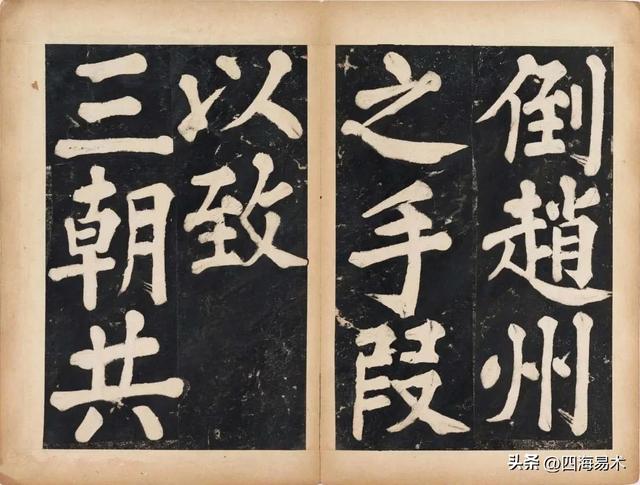 倒趙州
之手段
以致
三朝共
头条 @四海易木